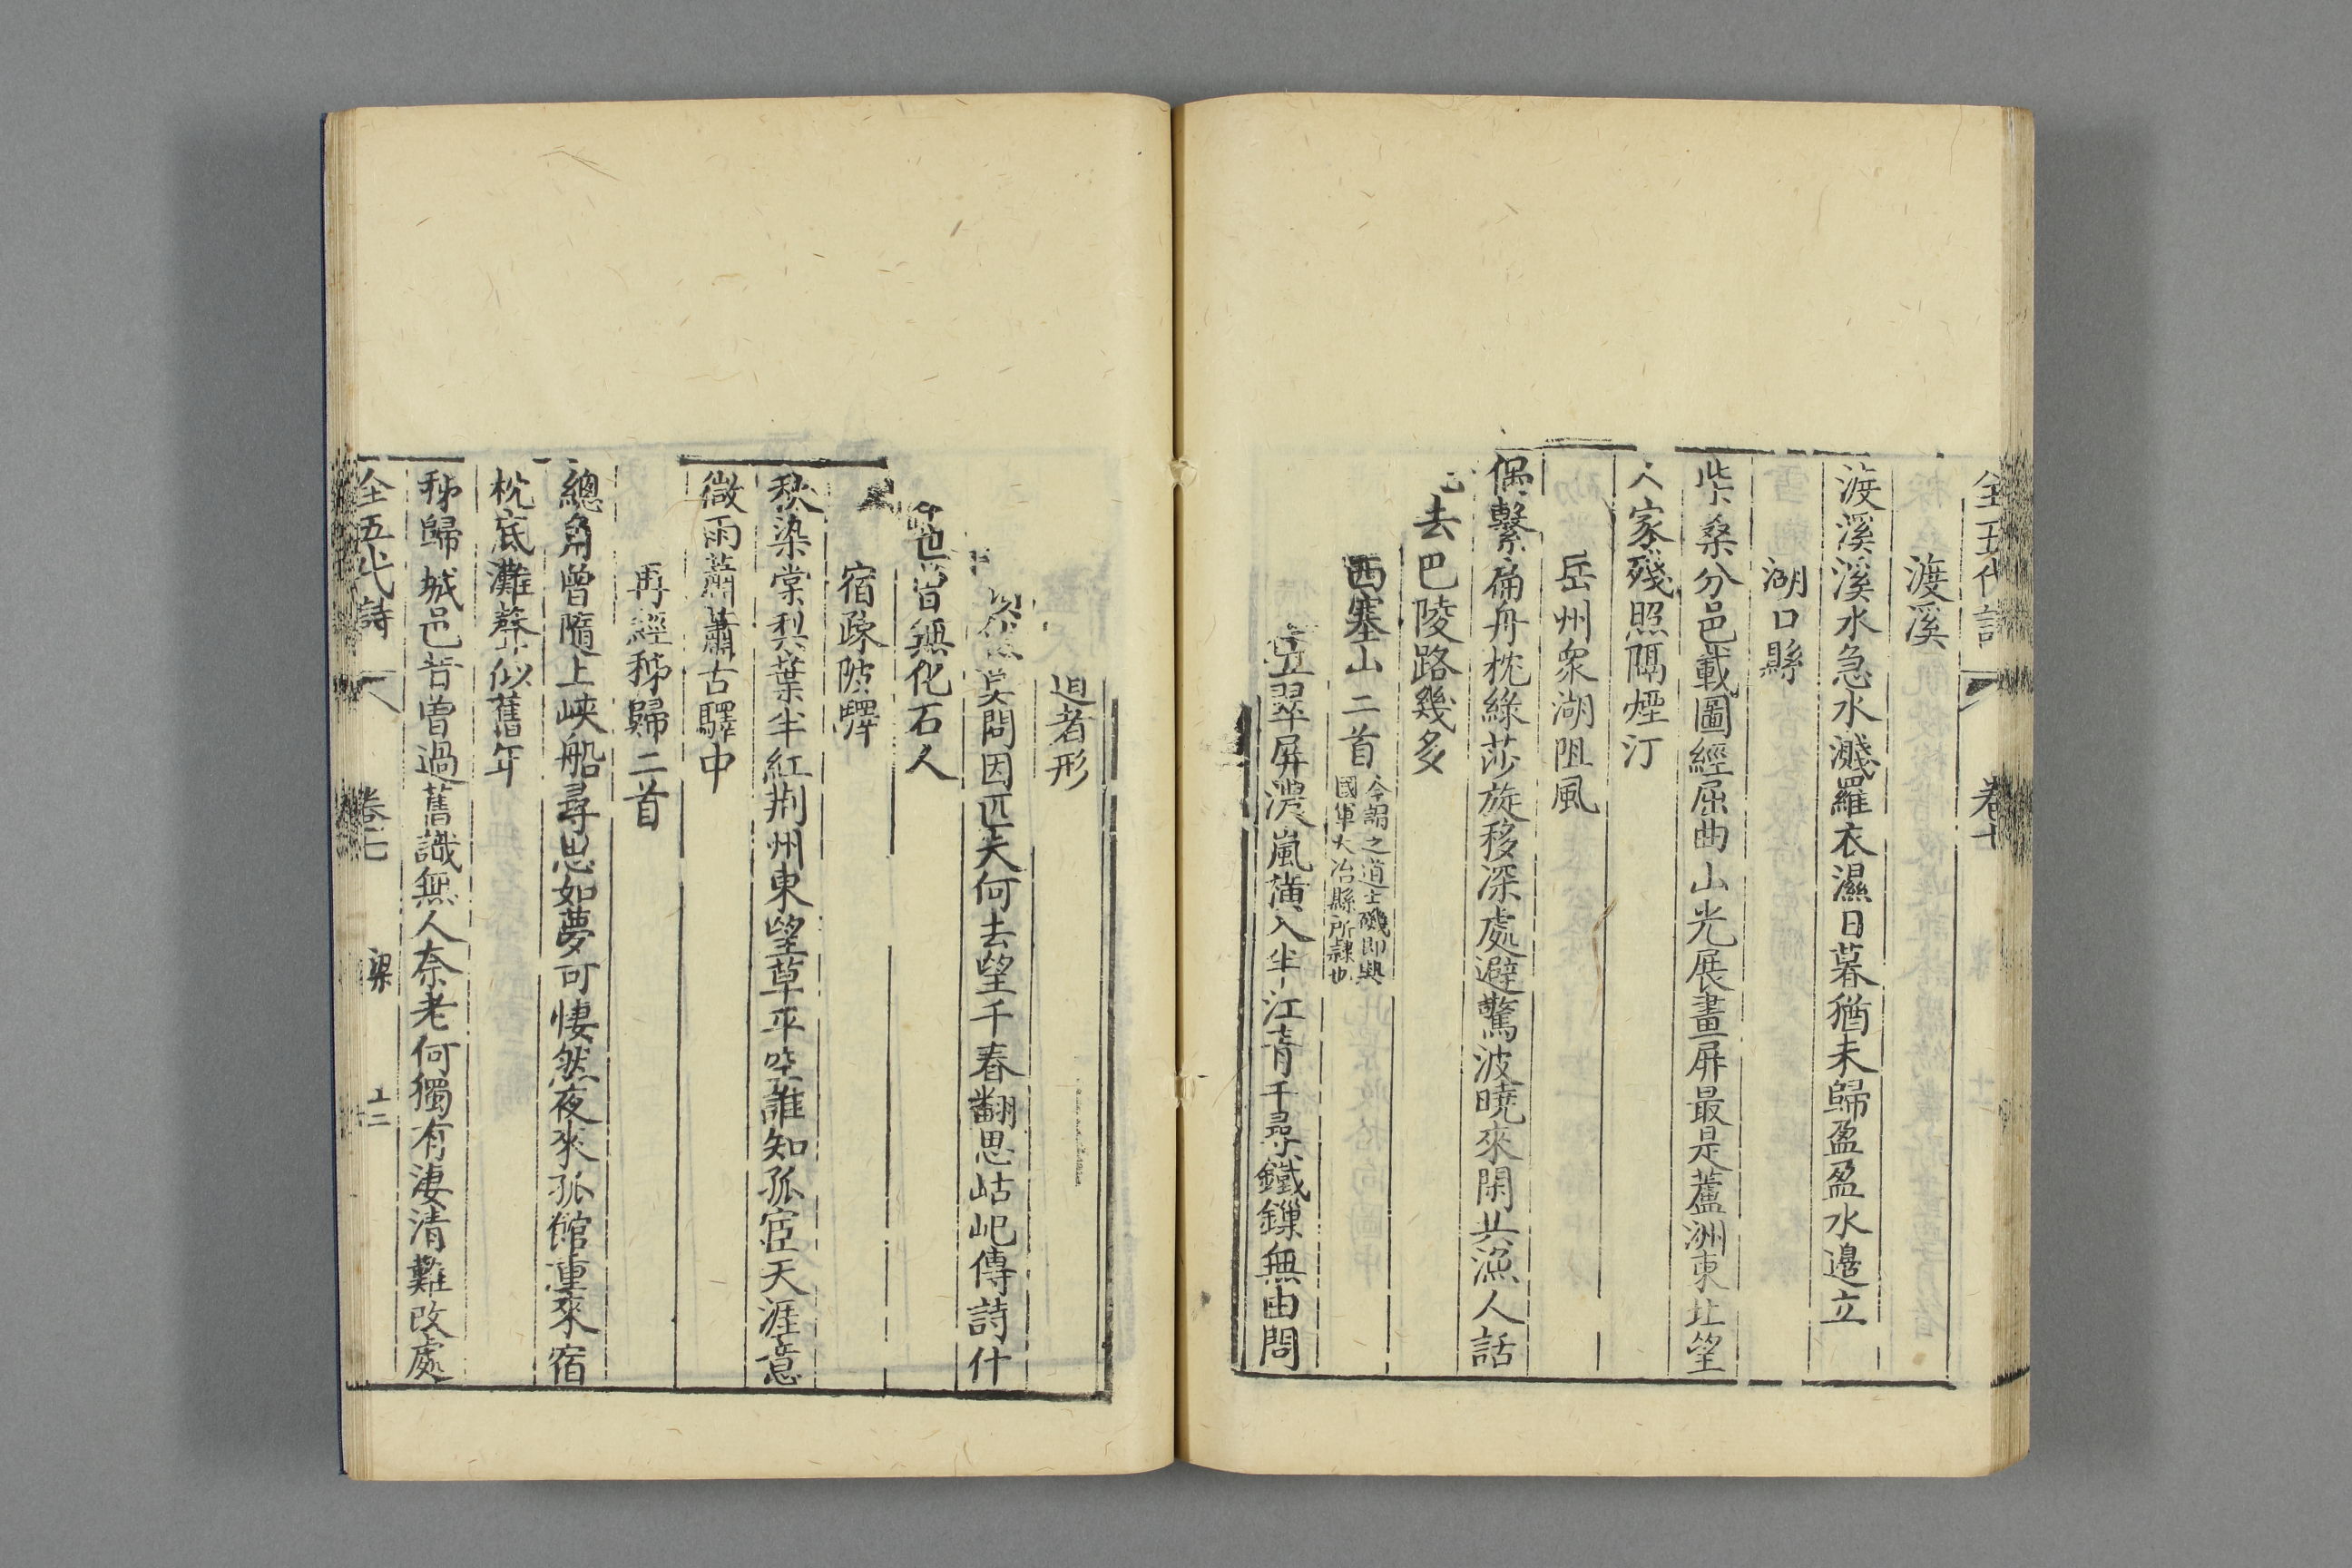 全五代詩 卷七
渡溪
渡溪溪水急水濺羅衣濕日暮猶未歸盈盈水邊立
湖口縣
柴桑分邑載圖經屈曲山光展畫屏最是蘆洲東北望
人家殘照隔煙汀
岳州衆湖阻風
偶繫扁舟枕綠莎旋移深處避驚波曉來閑共漁人話
去巴陵路幾多
西塞山二首
今謂之道士磯即興
國軍大冶縣所隸也
壁立翠屏濃嵐橫入半江青千尋鐵鏁無由問
道者形
莫問因匹夫何去望千春翻思岵屺傳詩什
世曾無化石人
宿疎陂驛
秋染棠梨葉半紅荆州東望草平空誰知孤宦天涯意
微雨蕭蕭古驛中
再經秭歸二首
總角曾隨上峽船尋思如夢可悽然夜來孤館重來宿
枕底灘聲似舊年
秭歸城邑昔曾過舊識無人奈老何獨有淒清難改處
全五代詩 卷七 梁 十二